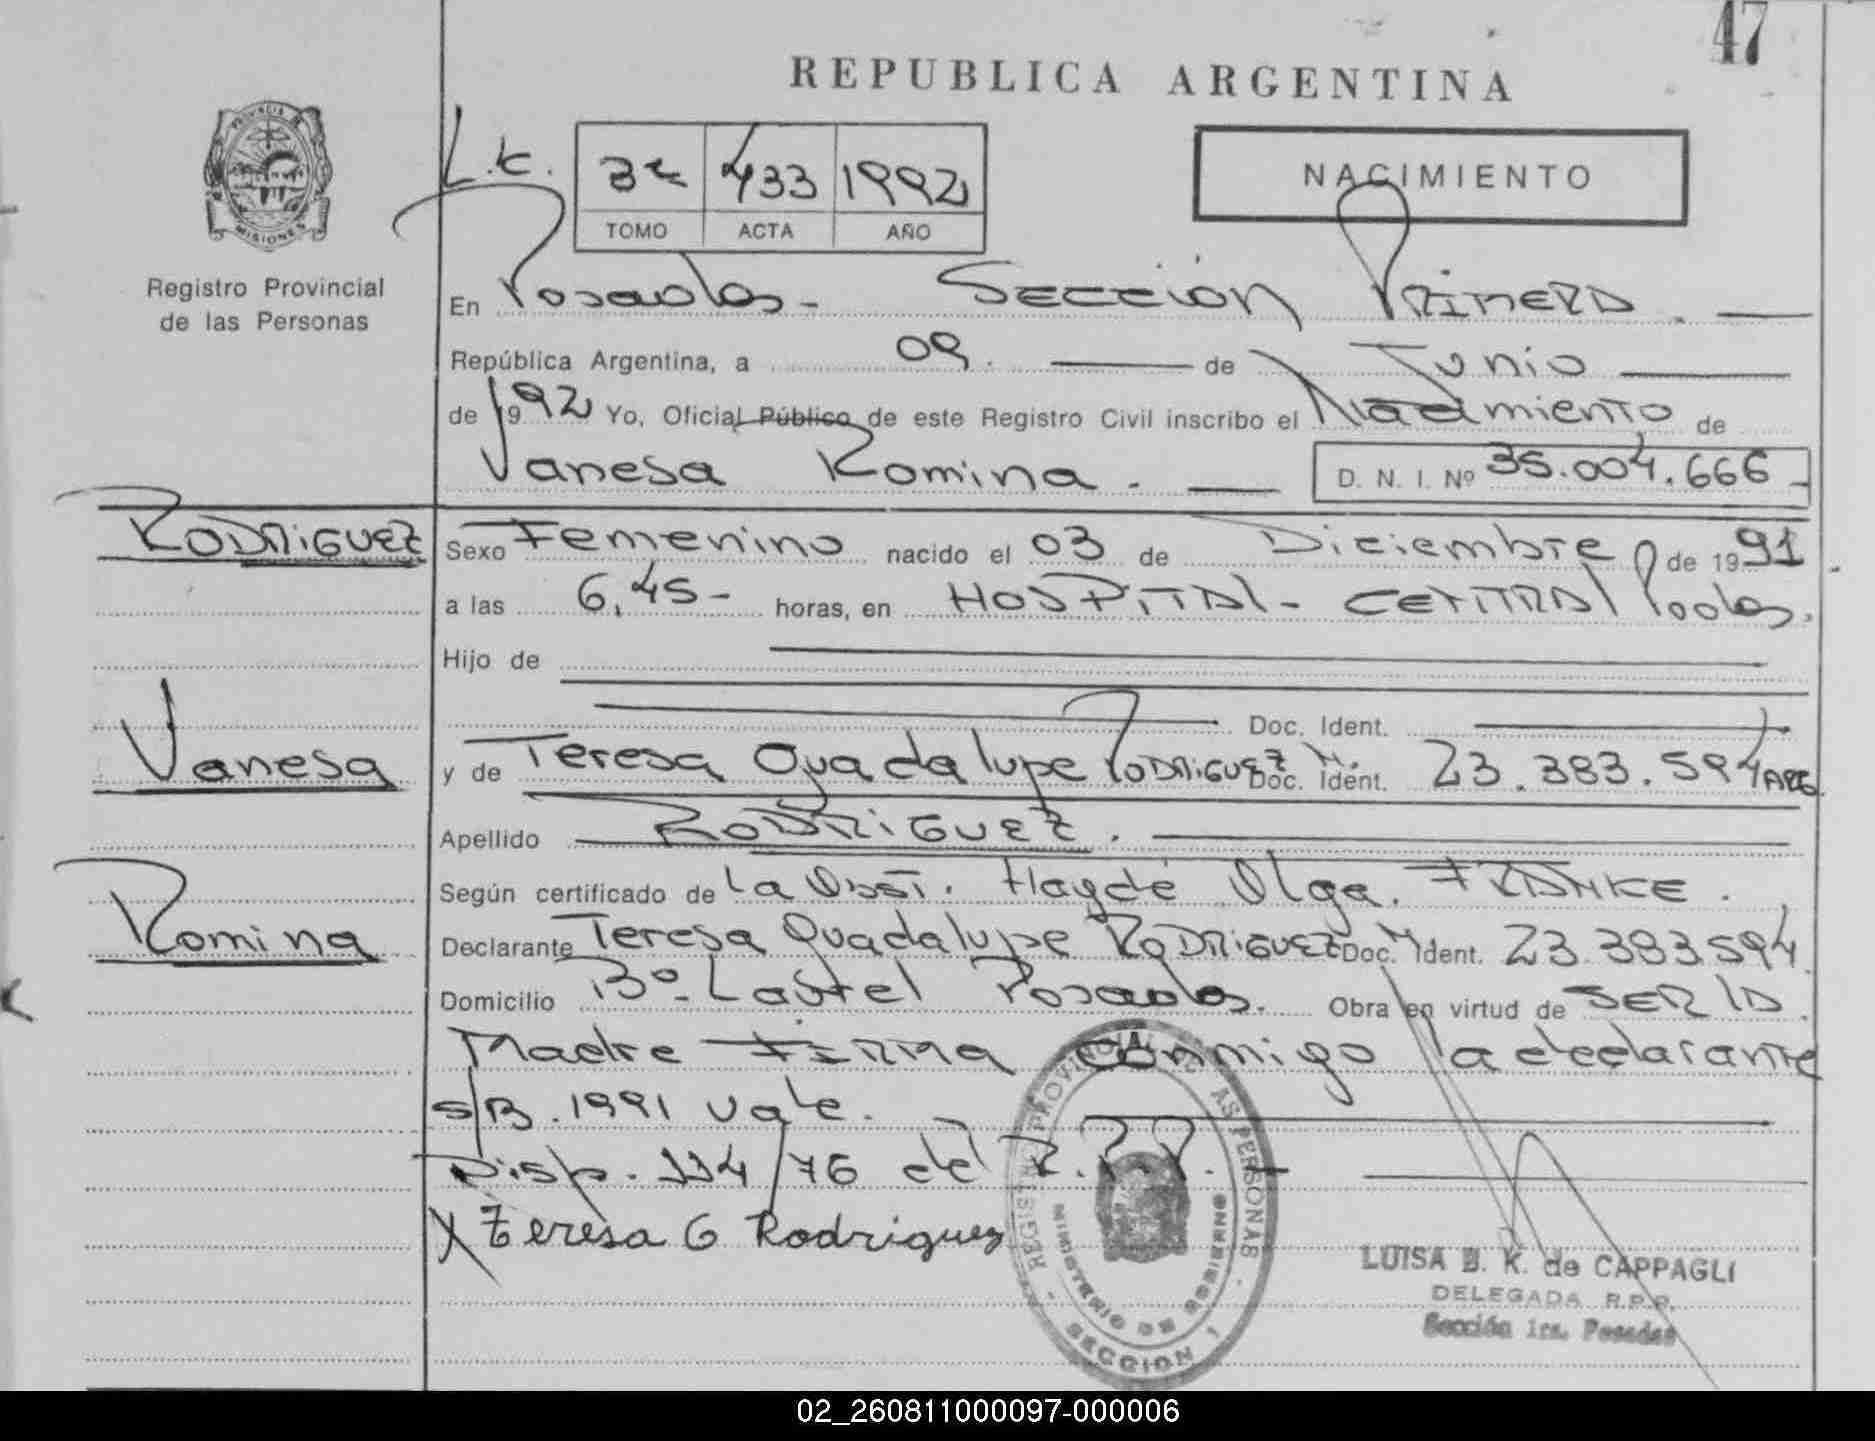 47
REPUBLICA ARGENTINA
PROVINCIA DE
MISIONES
Registro Provincial
de las Personas
L.C.
3º 433 1992
TOMO ACTA AÑO
NACIMIENTO
En Posadas - Sección Primera.
República Argentina, a 09. de Junio
de 1992 Yo, Oficial Público de este Registro Civil inscribo el Nacimiento de
Vanesa Romina. D. N. I. Nº 35.004.666
RODRIGUEZ
Sexo Femenino nacido el 03 de Diciembre de 1991
a las 6,45- horas, en HOSPITAL - CENTRAL Pdas.
Hijo de
Doc. Ident.
Vanesa
y de Teresa Guadalupe RODRIGUEZ Doc. Ident. 23.383.594 ARG
Apellido RODRIGUEZ.
Según certificado de la Obst. Haydé Olga. FRANKE.
Romina
Declarante Teresa Guadalupe RODRIGUEZ Doc. Ident. 23.383.594
Domicilio Bº - Lastel Posadas. Obra en virtud de SER la
Madre FIRMA conmigo la declarante
S/B. 1991 vale.
Disp. 114/76 del R.P.P.
X Teresa G Rodriguez
REGISTRO PROVINCIAL DE LAS PERSONAS
MINISTERIO DE GOBIERNO
SECCION 1
LUISA B. K. de CAPPAGLI
DELEGADA R.P.P.
Sección 1ra. Posadas
02_260811000097-000006